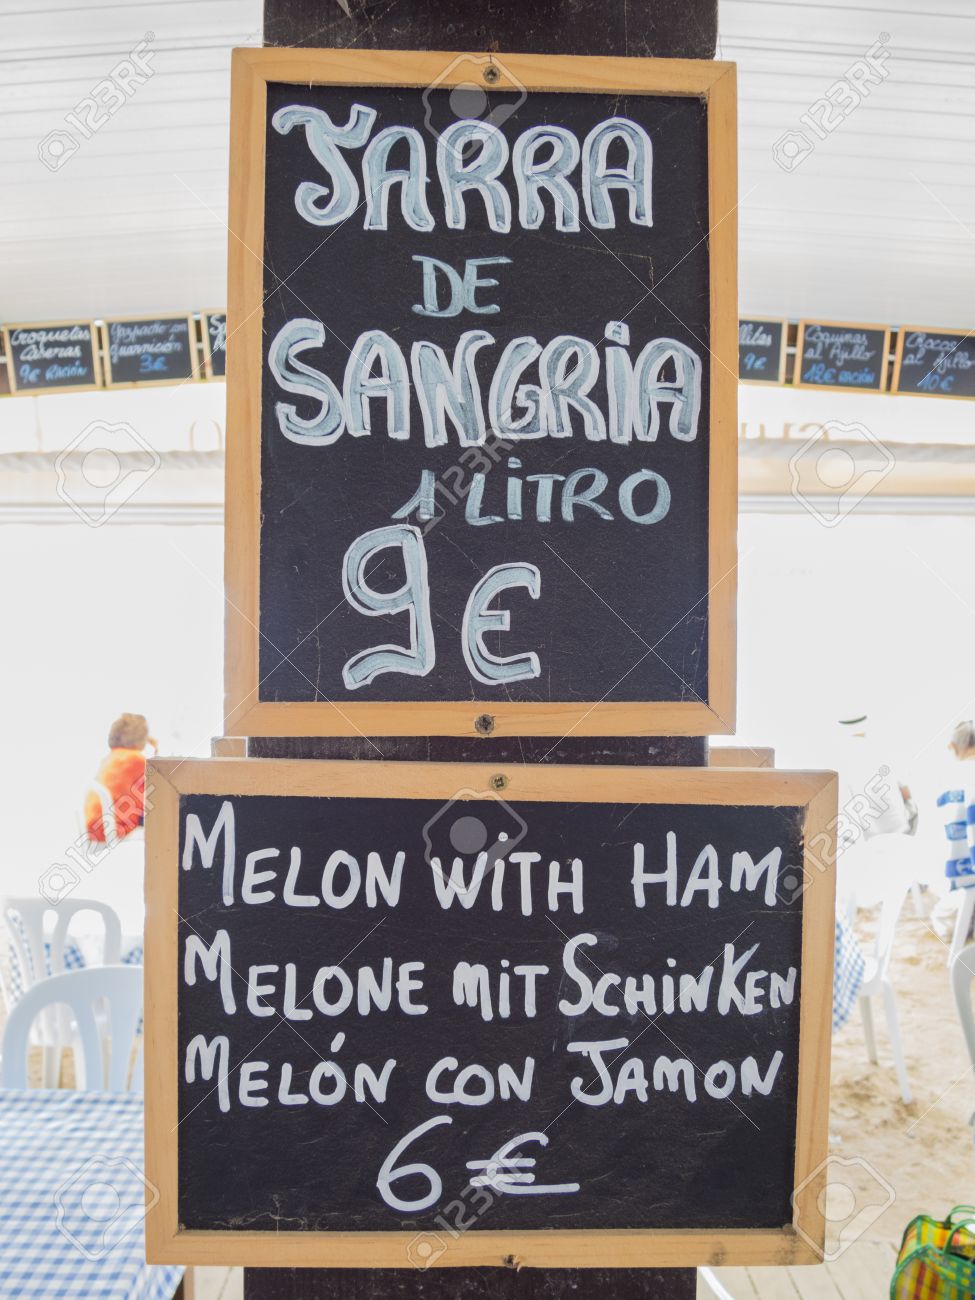 JARRA
DE
SANGRIA
1 LITRO
9€
Croquetas
Caseras
9€ RACIÓN
Gazpacho con
Guarnición
3€
9€
Coquinas
al Ajillo
12€ RACIÓN
Chocos
al Ajillo
10€
MELON WITH HAM
MELONE MIT SCHINKEN
MELÓN CON JAMON
6€
123RF